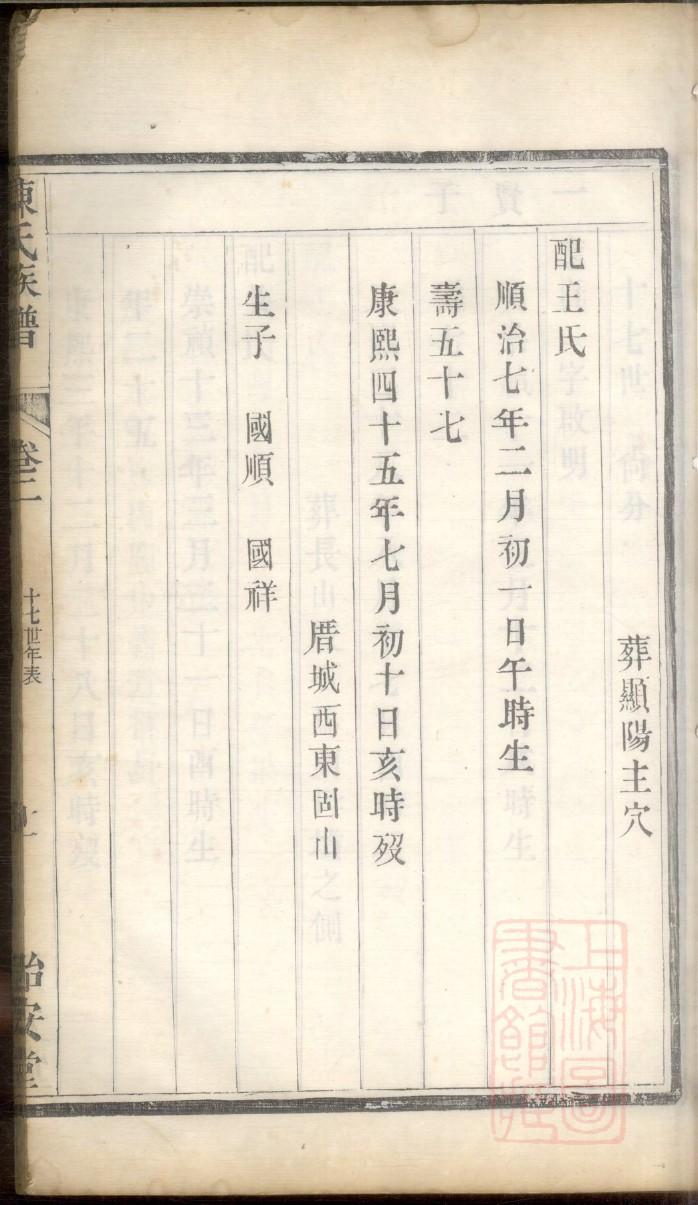 葬顯陽主穴
配王氏
順治七年二月初一日午時生
壽五十七
康熙四十五年七月初十日亥時歿
厝城西東固山
生子　國順　國祥
陳氏族譜
卷二
十七世年表
怡安堂
上海圖
書館藏